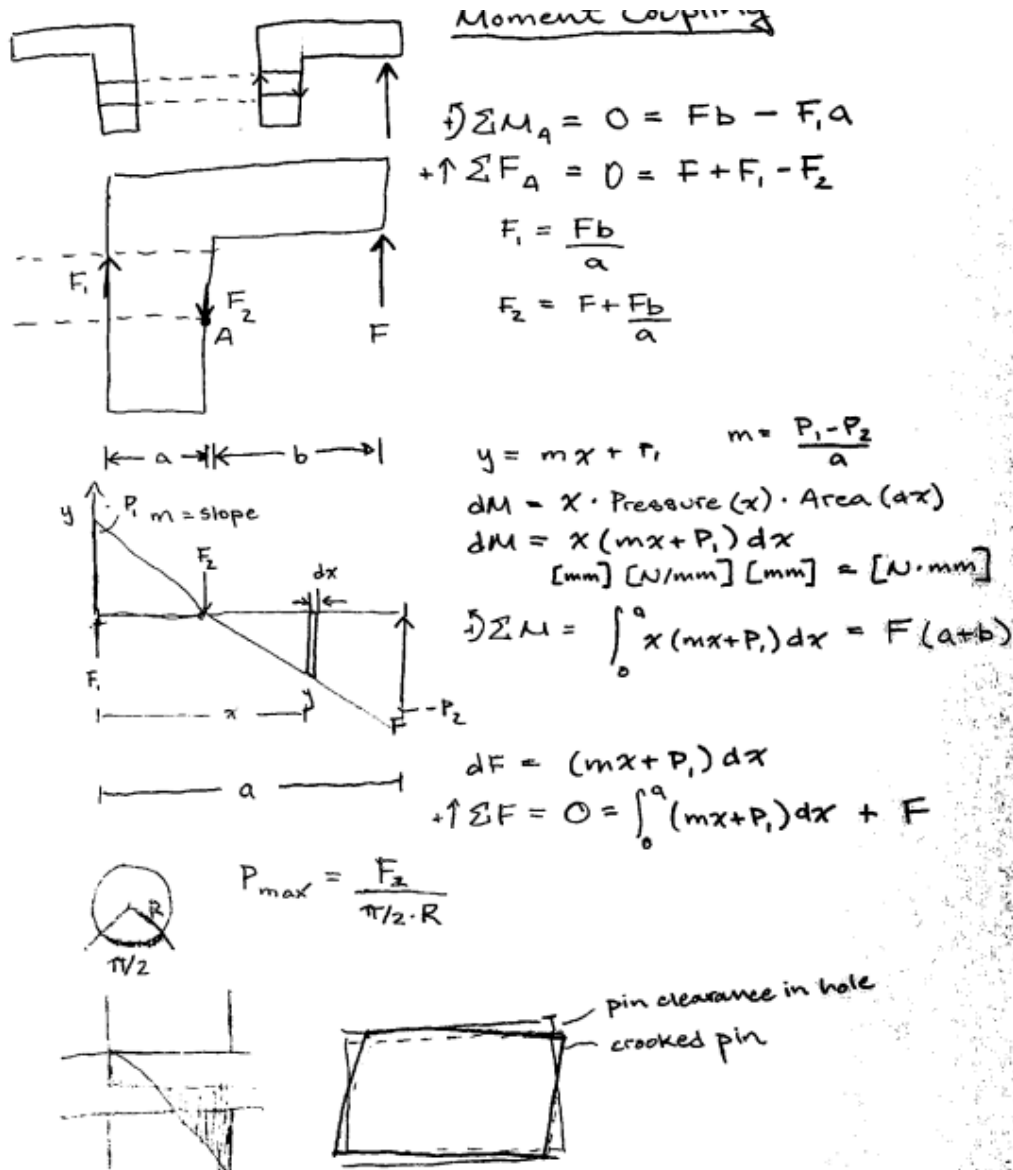 Moment Coupling
↻ΣM_A = 0 = Fb − F₁a
+↑ΣF_A = 0 = F + F₁ − F₂
F₁ = Fb/a
F₂ = F + Fb/a
F₁
F₂
A
F
a
b
y = mx + P₁
m = (P₁ − P₂)/a
dM = x · Pressure(x) · Area(dx)
dM = x(mx + P₁)dx
[mm] [N/mm] [mm] = [N·mm]
↻ΣM = ∫₀ᵃ x(mx+P₁)dx = F(a+b)
y
P₁
m = slope
F₂
dx
F₁
x
y
F
−P₂
a
dF = (mx + P₁)dx
+↑ΣF = 0 = ∫₀ᵃ (mx+P₁)dx + F
P_max = F₂/(π/2·R)
R
π/2
pin clearance in hole
crooked pin